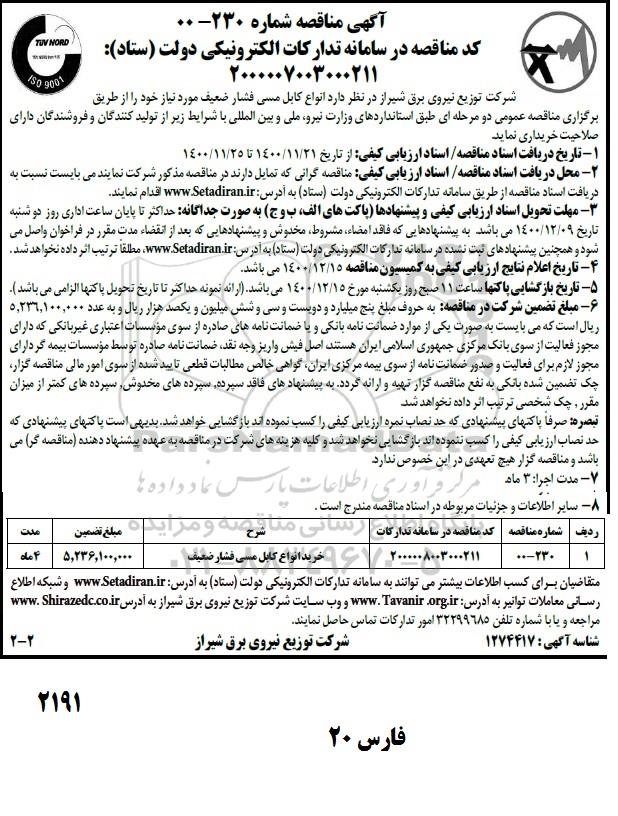 آگهی مناقصه شماره ۲۳۰-۰۰
کد مناقصه در سامانه تدارکات الکترونیکی دولت (ستاد):
۲۰۰۰۰۰۷۰۰۳۰۰۰۲۱۱
TÜV NORD
ISO 9001
شرکت توزیع نیروی برق شیراز در نظر دارد انواع کابل مسی فشار ضعیف مورد نیاز خود را از طریق
برگزاری مناقصه عمومی دو مرحله ای طبق استانداردهای وزارت نیرو، ملی و بین المللی با شرایط زیر از تولید کنندگان و فروشندگان دارای
صلاحیت خریداری نماید.
۱- تاریخ دریافت اسناد مناقصه/ اسناد ارزیابی کیفی: از تاریخ ۱۴۰۰/۱۱/۲۱ تا ۱۴۰۰/۱۱/۲۵
۲- محل دریافت اسناد مناقصه/ اسناد ارزیابی کیفی: مناقصه گرانی که تمایل دارند در مناقصه مذکور شرکت نمایند می بایست نسبت به
دریافت اسناد مناقصه از طریق سامانه تدارکات الکترونیکی دولت (ستاد) به آدرس: www.Setadiran.ir اقدام نمایند.
۳- مهلت تحویل اسناد ارزیابی کیفی و پیشنهادها (پاکت های الف، ب و ج) به صورت جداگانه: حداکثر تا پایان ساعت اداری روز دو شنبه
تاریخ ۱۴۰۰/۱۲/۰۹ می باشد. به پیشنهادهایی که فاقد امضاء، مشروط، مخدوش و پیشنهادهایی که بعد از انقضاء مدت مقرر در فراخوان واصل می
شود و همچنین پیشنهادهای ثبت نشده در سامانه تدارکات الکترونیکی دولت (ستاد) به آدرس: www.Setadiran.ir، مطلقاً ترتیب اثر داده نخواهد شد.
۴- تاریخ اعلام نتایج ارزیابی کیفی به کمیسیون مناقصه ۱۴۰۰/۱۲/۱۵ می باشد.
۵- تاریخ بازگشایی پاکتها ساعت ۱۱ صبح روز یکشنبه مورخ ۱۴۰۰/۱۲/۱۵ می باشد. (ارائه نمونه حداکثر تا تاریخ تحویل پاکتها الزامی می باشد).
۶- مبلغ تضمین شرکت در مناقصه: به حروف مبلغ پنج میلیارد و دویست و سی و شش میلیون و یکصد هزار ریال و به عدد ۵,۲۳۶,۱۰۰,۰۰۰
ریال است که می بایست به صورت یکی از موارد ضمانت نامه بانکی و یا ضمانت نامه های صادره از سوی مؤسسات اعتباری غیربانکی که دارای
مجوز فعالیت از سوی بانک مرکزی جمهوری اسلامی ایران هستند، اصل فیش واریز وجه نقد، ضمانت نامه صادره توسط مؤسسات بیمه گر دارای
مجوز لازم برای فعالیت و صدور ضمانت نامه از سوی بیمه مرکزی ایران، گواهی خالص مطالبات قطعی تایید شده از سوی امور مالی مناقصه گزار،
چک تضمین شده بانکی به نفع مناقصه گزار تهیه و ارائه گردد. به پیشنهاد های فاقد سپرده، سپرده های مخدوش، سپرده های کمتر از میزان
مقرر، چک شخصی ترتیب اثر داده نخواهد شد.
تبصره: صرفاً پاکتهای پیشنهادی که حد نصاب نمره ارزیابی کیفی را کسب نموده اند بازگشایی خواهد شد. بدیهی است پاکتهای پیشنهادی که
حد نصاب ارزیابی کیفی را کسب ننموده اند بازگشایی نخواهد شد و کلیه هزینه های شرکت در مناقصه به عهده پیشنهاد دهنده (مناقصه گر) می
باشد و مناقصه گزار هیچ تعهدی در این خصوص ندارد.
۷- مدت اجرا: ۳ ماه.
۸- سایر اطلاعات و جزئیات مربوطه در اسناد مناقصه مندرج است.
ردیف شماره مناقصه کد مناقصه در سامانه تدارکات شرح مبلغ تضمین مدت
۱ ۲۳۰-۰۰ ۲۰۰۰۰۰۸۰۰۳۰۰۰۲۱۱ خرید انواع کابل مسی فشار ضعیف ۵,۲۳۶,۱۰۰,۰۰۰ ۴ ماه
متقاضیان برای کسب اطلاعات بیشتر می توانند به سامانه تدارکات الکترونیکی دولت (ستاد) به آدرس: www.Setadiran.ir و شبکه اطلاع
رسانی معاملات توانیر به آدرس: www.Tavanir.org.ir و وب سایت شرکت توزیع نیروی برق شیراز به آدرس www.Shirazedc.co.ir
مراجعه و یا با شماره تلفن ۳۲۲۹۹۶۸۵ امور تدارکات تماس حاصل نمایند.
شناسه آگهی: ۱۲۷۴۴۱۷ شرکت توزیع نیروی برق شیراز ۲-۲
مرکز فرآوری اطلاعات پارس نماد داده ها
پایگاه اطلاع رسانی مناقصه و مزایده
۰۲۱-۸۸۳۴۹۶۷۰-۵
۲۱۹۱
فارس ۲۰